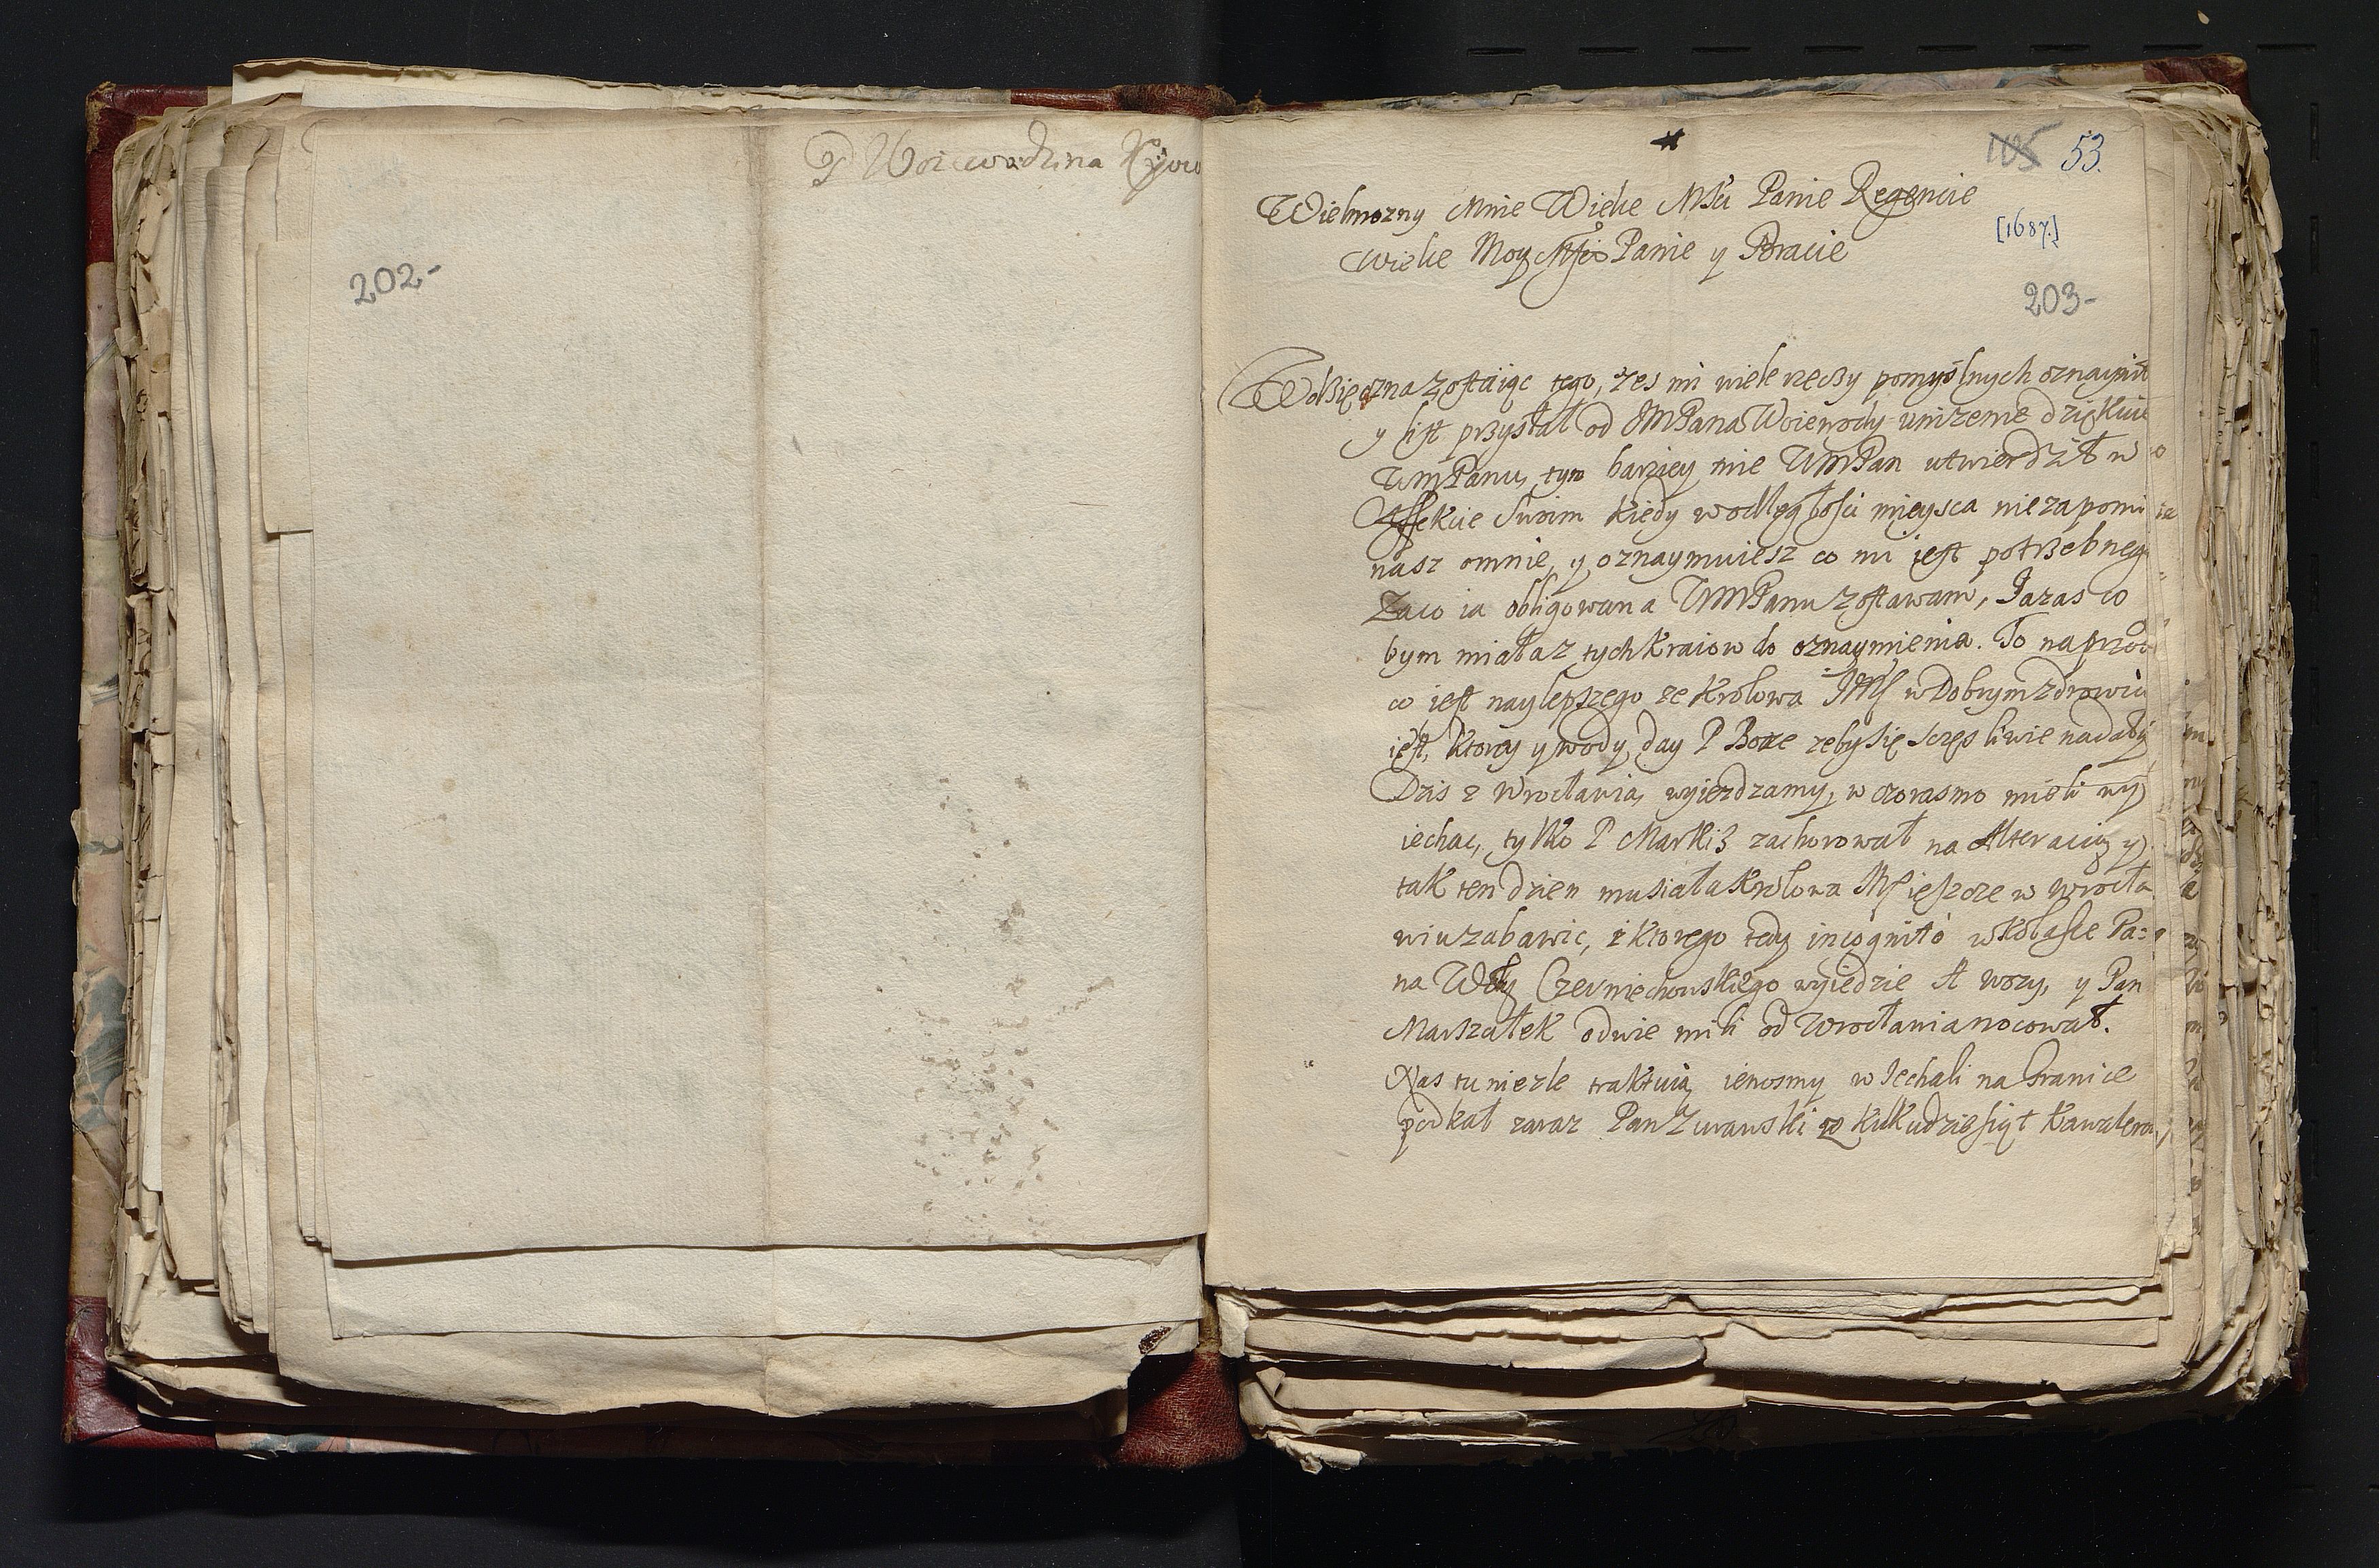 P Woiewodzina Kyow
202-
105 53.
Wielmozny Mnie Wielce Mści Panie Regencie
[1687.]
Wielce Moy Mści Panie y Bracie
203-
Wdzięczna zostaiąc tego, żes mi wiele rzeczy pomyślnych oznaymił
y list przysłał od JMPana Woiewody unizenie dziękuie
WmPanu, tym barziey mie WMPan utwierdził w
Affekcie Swoim kiedy w odległości mieysca nie zapomi
nasz omnie, y oznaymuiesz co mi iest potrzebneg
Zaco ia obligowana WMPanu zostawam, Jazas co
bym miała z tych kraiow do oznaymienia. To naprzod
co iest naylepszego ze Krolowa JMs w Dobrym zdrowiu
iest, ktorey y wody day P Boze zeby się sczęsliwie nadały
Dzis z Wrocławia wyiezdzamy, w czora smo mieli wy
iechac, tylko P Markiz zachorował na Alteracią y
tak ten dzien musiała Krolowa JMs ieszcze w Wrocła
wiu zabawic, z ktorego tedy incognito w kolasce Pa:
na Wdy Czerniechowskiego wyiedzie A wozy, y Pan
Marszałek o dwie mili od Wrocławia nocował.
Nas tu niezle traktuią ienosmy w Jechali na Granice
podkał zaraz Pan Zwawski z kilkudziesiąt Kawalerow